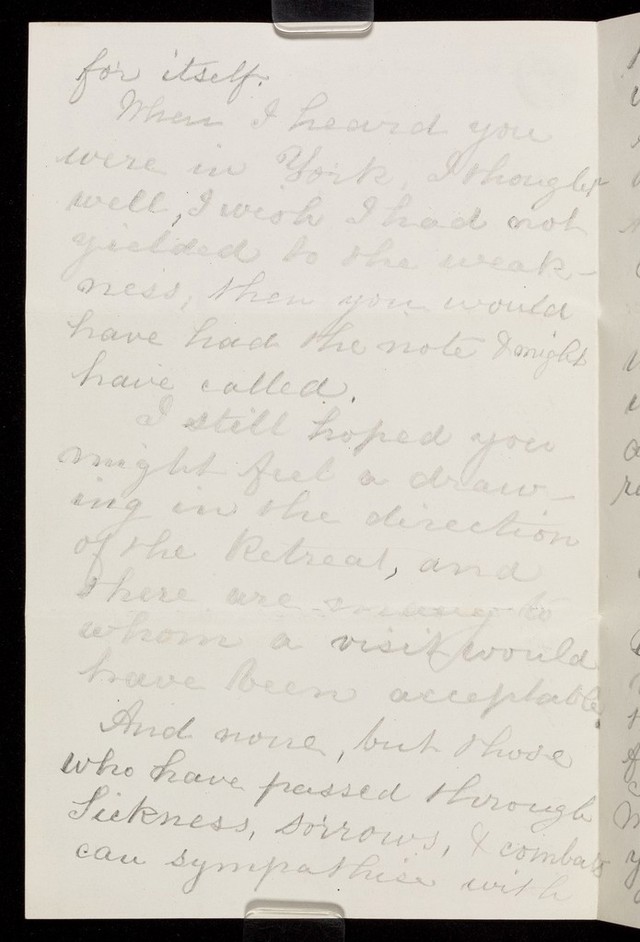 for itself.
When I heard you
were in York, I thought
well, I wish I had not
yielded to the weak-
ness, then you would
have had the note & might
have called.
I still hoped you
might feel a draw-
ing in the direction
of the Retreat, and
there are many to
whom a visit would
have been acceptable.
And none, but those
who have passed through
Sickness, sorrows, & combats
can sympathise with